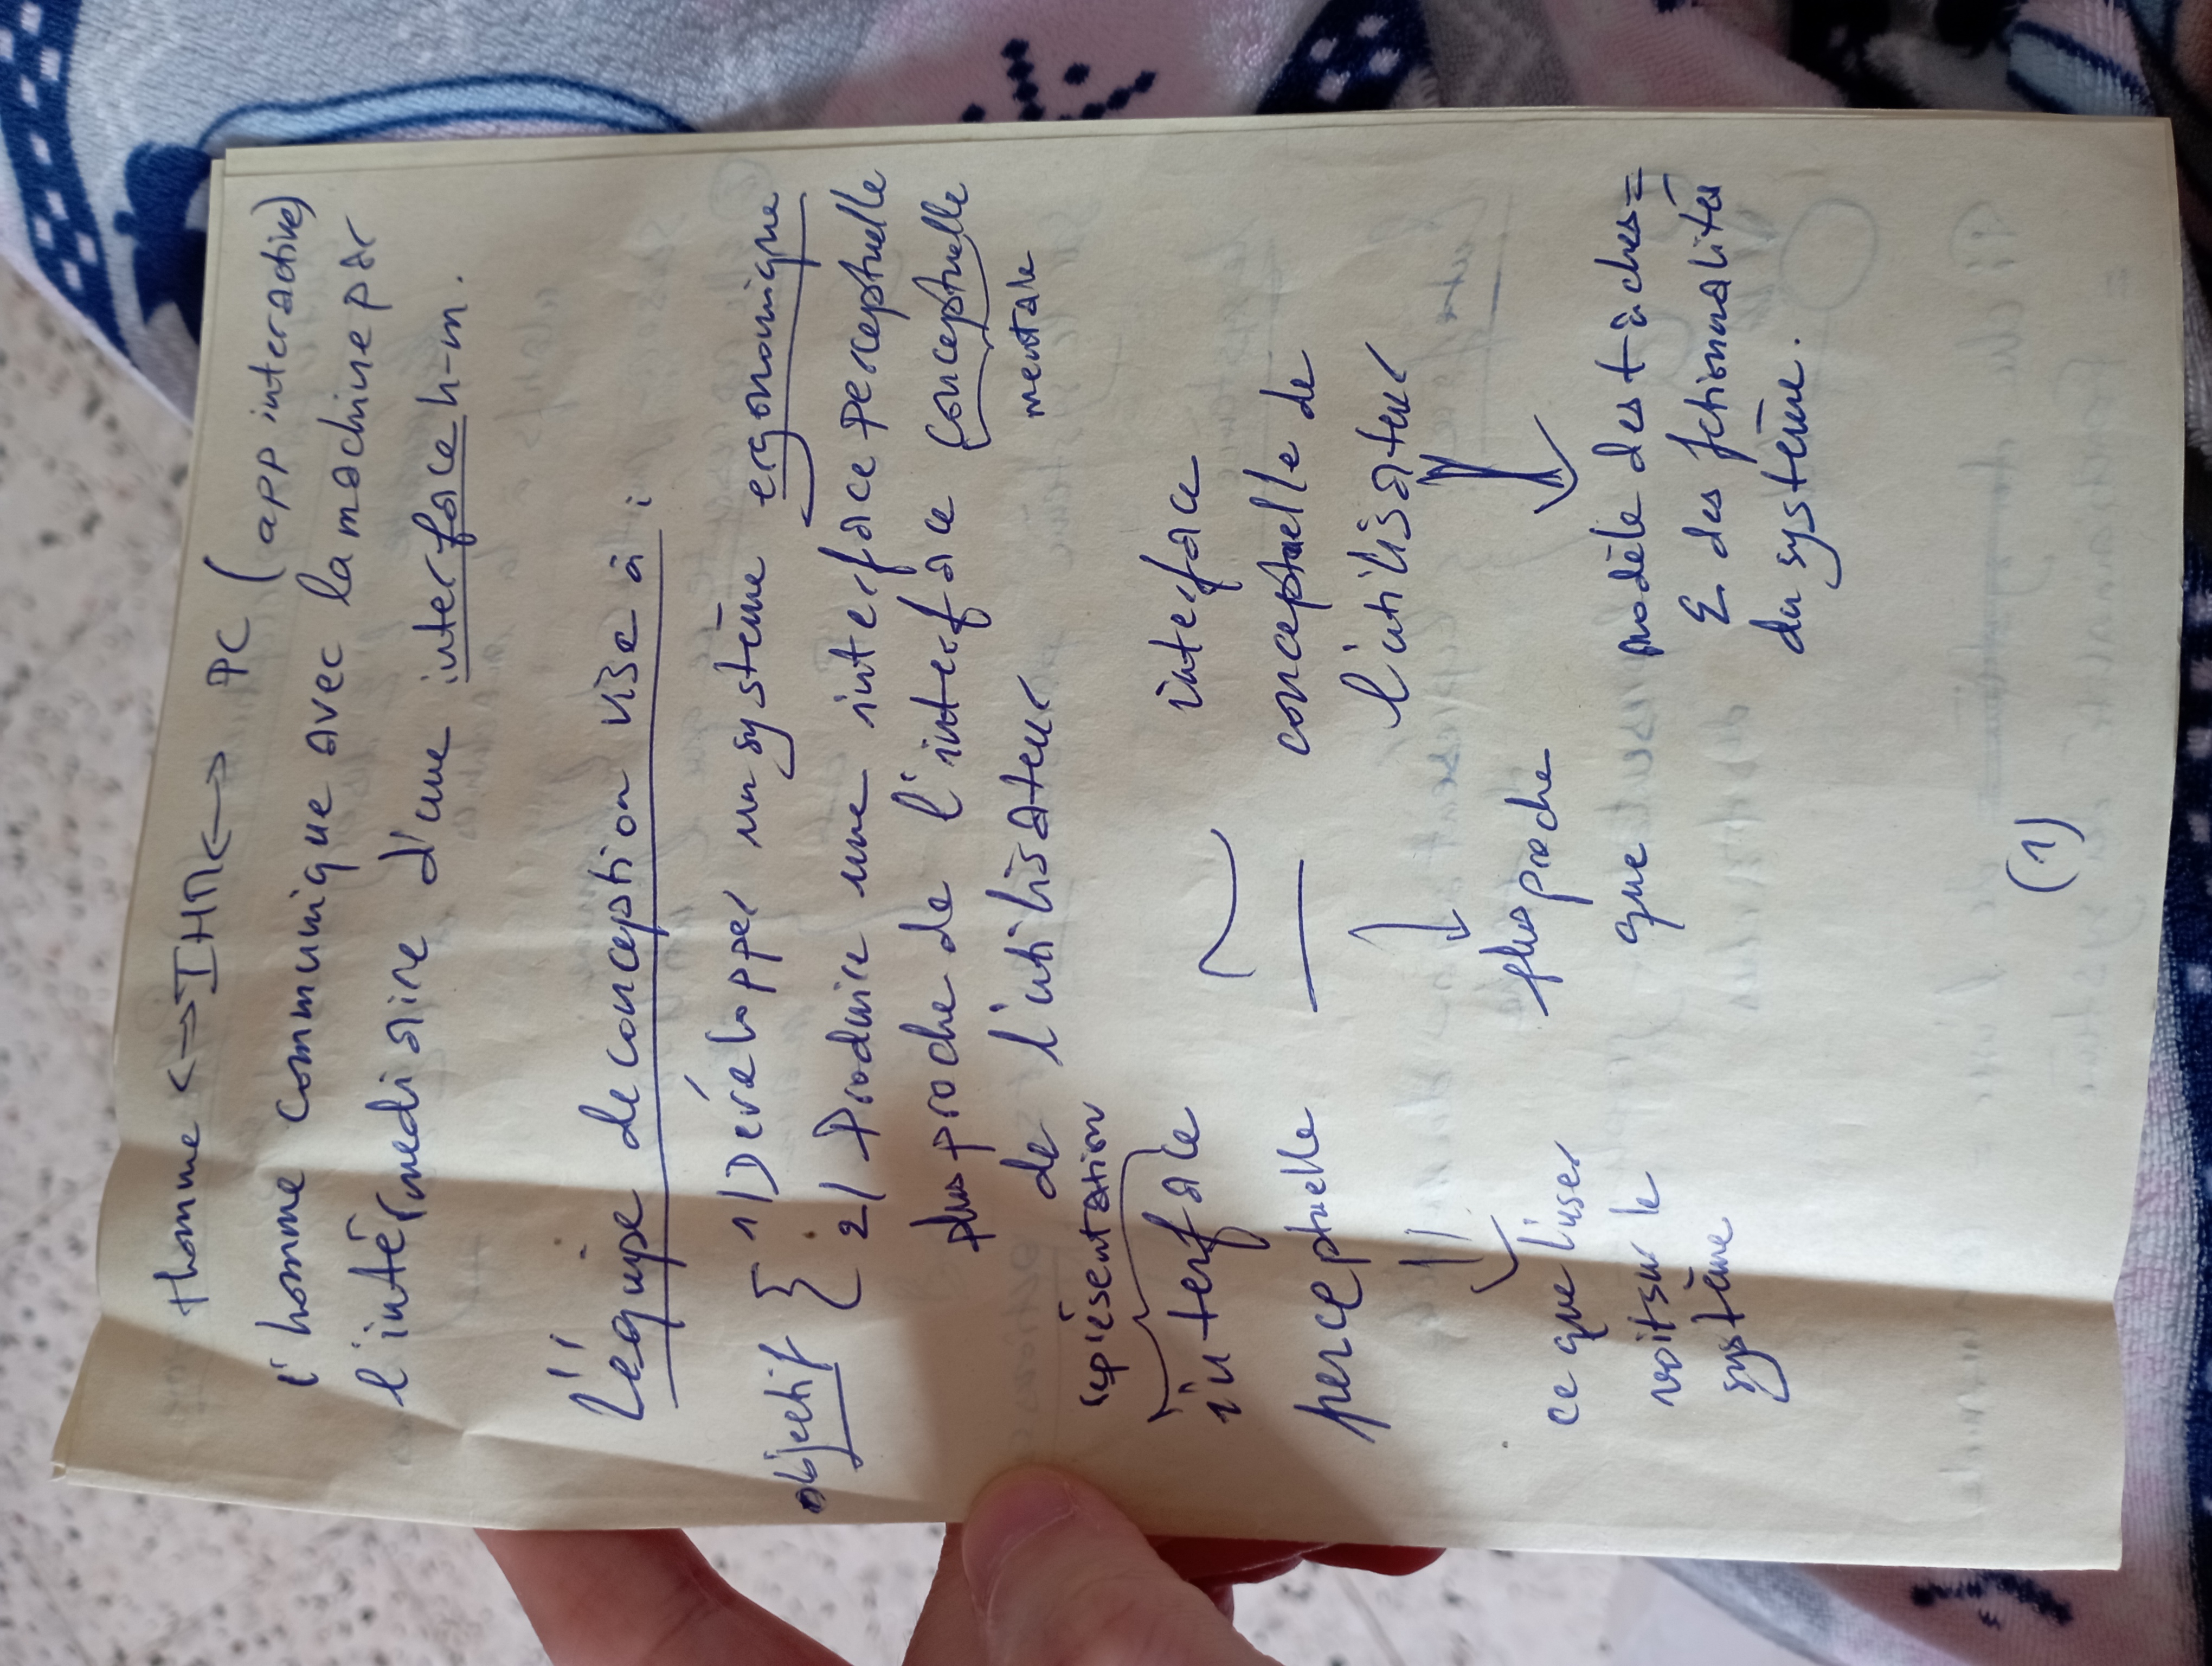 Homme <-> IHM <-> PC (app interactive)
l'homme communique avec la machine par
l'intérmediaire d'une interface h-m.
L'équipe de conception vise à :
objectif { 1/ Développer un système ergonomique
2/ Produire une interface perceptuelle
plus proche de l'interface conceptuelle
mentale
de l'utilisateur
représentation
interface ~ interface
perceptuelle — conceptuelle de
l'utilisateur
ce que l'user plus proche
voit sur le que modèle des tâches =
système Σ des fctionnalités
du système.
(1)